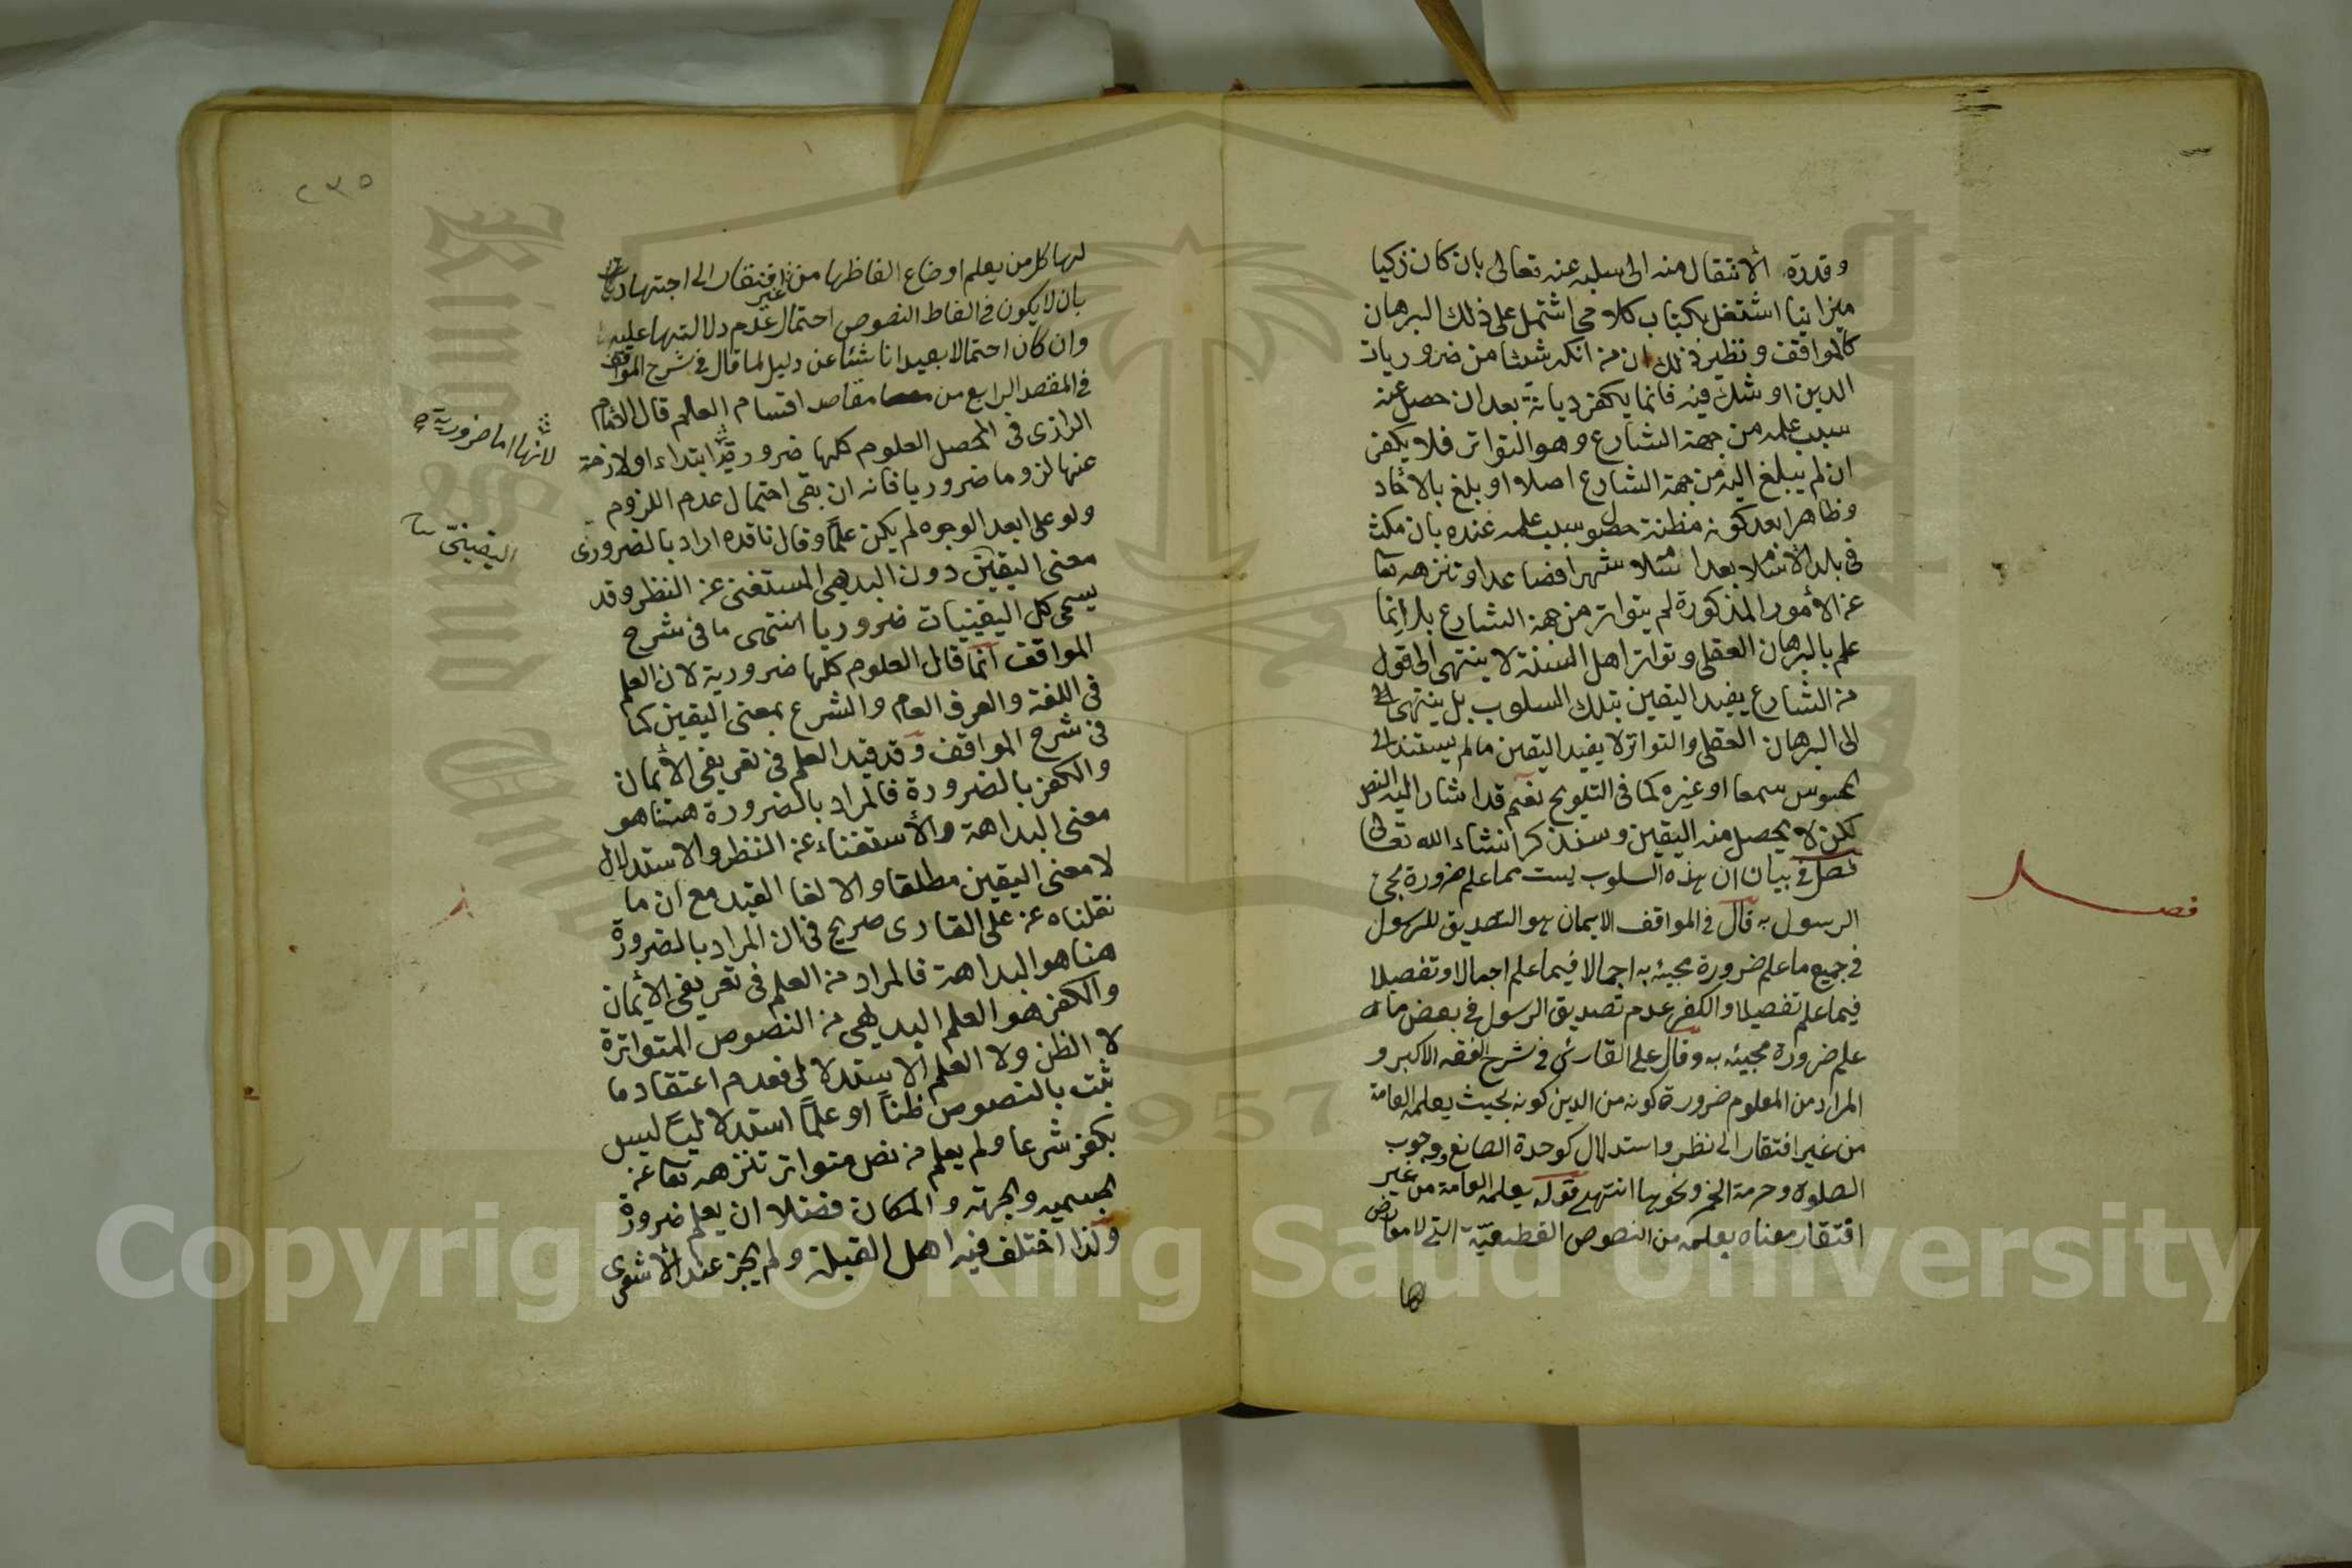 وقدرة الانتقال منه الى سلبه عنه تعالى بان كان زكيا
ميزانيا اشتغل بكتاب كلامي اشتمل على ذلك البرهان
كالمواقف ونظير ذلك ان من انكر شيئا من ضروريات
الدين او شك فيه فانما يكفر ديانة بعد ان حصل عنه
سبب علمه من جهة الشارع وهو التواتر فلا يكفر
ان لم يبلغ اليه من جهة الشارع اصلا او بلغ بالآحاد
وظاهرا بعد كونه مظنة حصول سبب علمه عنده بان مكث
في بلد الاسلام بعد اسلامه شهرا فصاعدا وتنزهه تعا
عن الأمور المذكورة لم يتواتر من جهة الشارع بل إنما
علم بالبرهان العقلي وتواتر اهل السنة لا ينتهى الى قول
من الشارع يفيد اليقين بتلك السلوب بل ينتهى الى
الى البرهان العقلى والتواتر لا يفيد اليقين ما لم يستند الى
محسوس سمعا او غيره كما في التلويح نعم قد اشار اليه النص
لكن لا يحصل منه اليقين وسنذكر انشاء الله تعالى
فصل في بيان ان هذه السلوب ليست مما علم ضرورة مجئ
الرسول به قال في المواقف الايمان هو التصديق للرسول
في جميع ما علم ضرورة مجيئه به اجمالا فيما علم اجمالا وتفصيلا
فيما علم تفصيلا والكفر عدم تصديق الرسول في بعض ما
علم ضرورة مجيئه به وقال على القارئ في شرح الفقه الاكبر و
المراد من المعلوم ضرورة كونه من الدين كونه بحيث يعلمه العامة
من غير افتقار الى نظر واستدلال كوحدة الصانع ووجوب
الصلوة وحرمة الخمر ونحوها انتهى قوله يعلمه العامة من غير
افتقار معناه يعلمه من النصوص القطعيّة التي لا معارض
لها
فصل
٢٣٥
لها كل من يعلم اوضاع الفاظها من غير افتقار الى اجتهاد
بان لا يكون في الفاظ النصوص احتمال عدم دلالتها عليه
وان كان احتمالا بعيدا ناشئا عن دليل لما قال في شرح المواقف
في المقصد الرابع من مقاصد اقسام العلم قال الامام
الرازى في المحصل العلوم كلها ضرورية ابتداء او لازمة
عنها لزوما ضروريا فانه ان بقى احتمال عدم اللزوم
ولو على ابعد الوجوه لم يكن علمًا وقال ناقده اراد بالضرورى
معنى اليقين دون البديهي المستغنى عن النظر وقد
يسمى كل اليقينيات ضروريا انتهى ما في شرح
المواقف انما قال العلوم كلها ضرورية لان العلم
في اللغة والعرف العام والشرع بمعنى اليقين كما
في شرح المواقف وقد قيد العلم في تعريفى الأيمان
والكفر بالضرورة فالمراد بالضرورة ههنا هو
معنى البداهة والأستغناء عن النظر والاستدلال
لا معنى اليقين مطلقا والا لغا القيد مع ان ما
نقلناه عن على القارى صريح في ان المراد بالضرورة
هنا هو البداهة فالمراد من العلم في تعريفى الأيمان
والكفر هو العلم البديهى من النصوص المتواترة
لا الظن ولا العلم الاستدلالى فعدم اعتقاد ما
ثبت بالنصوص ظنًا او علمًا استدلاليًا ليس
بكفر شرعا ولم يعلم من نص متواتر تنزهه تعا عن
الجسمية والجهة والمكان فضلا ان يعلم ضرورة
ولذا اختلف فيه اهل القبلة ولم يجز عند الأشعرى
لانها اما ضرورية
اليقينى